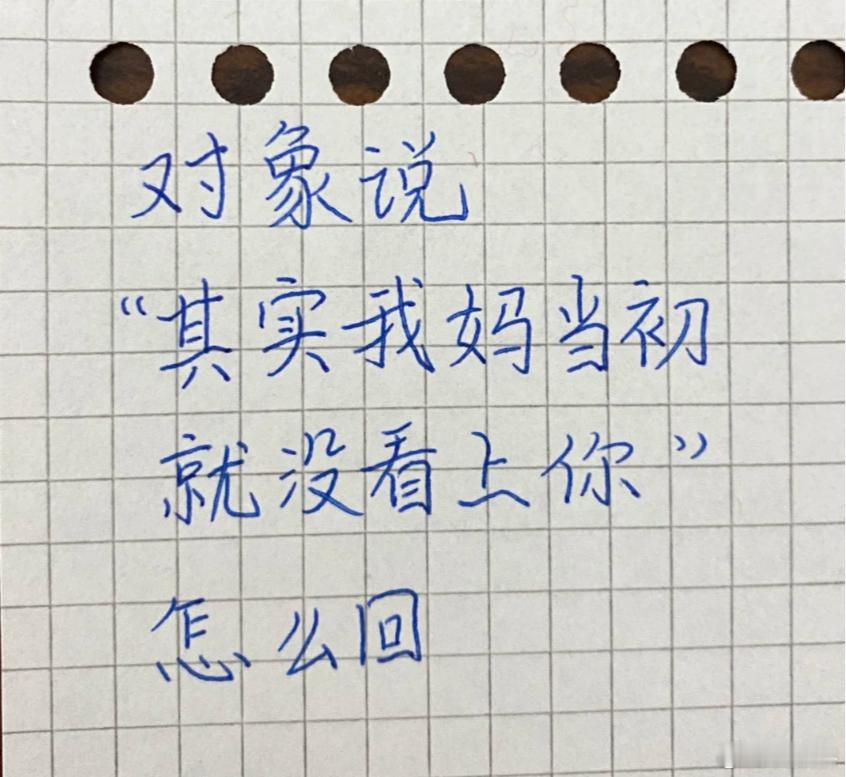 对象说
“其实我妈当初
就没看上你”
怎么回